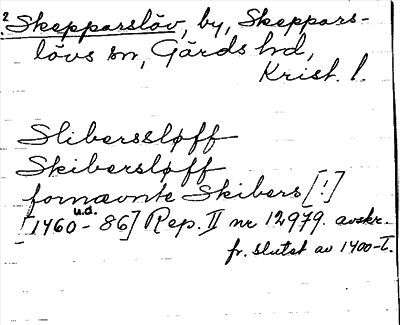 2 Skepparslöv, by, Skeppars-
lövs sn, Gärds hd,
Krist. l.
Sliberssløff
Skibersløff
fornævnte Skibers [!]
[1460 u.d. - 86] Rep. II nr 12979. avskr.
fr. slutet av 1400-t.